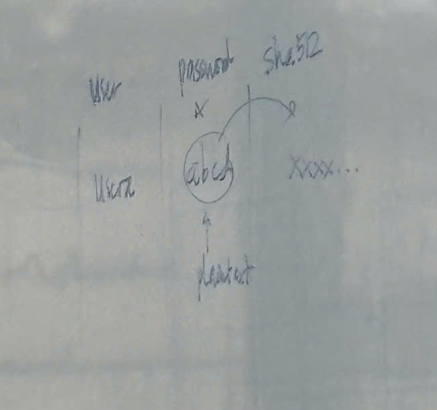 user password sha512
x
abcd xxxx...
plaintext